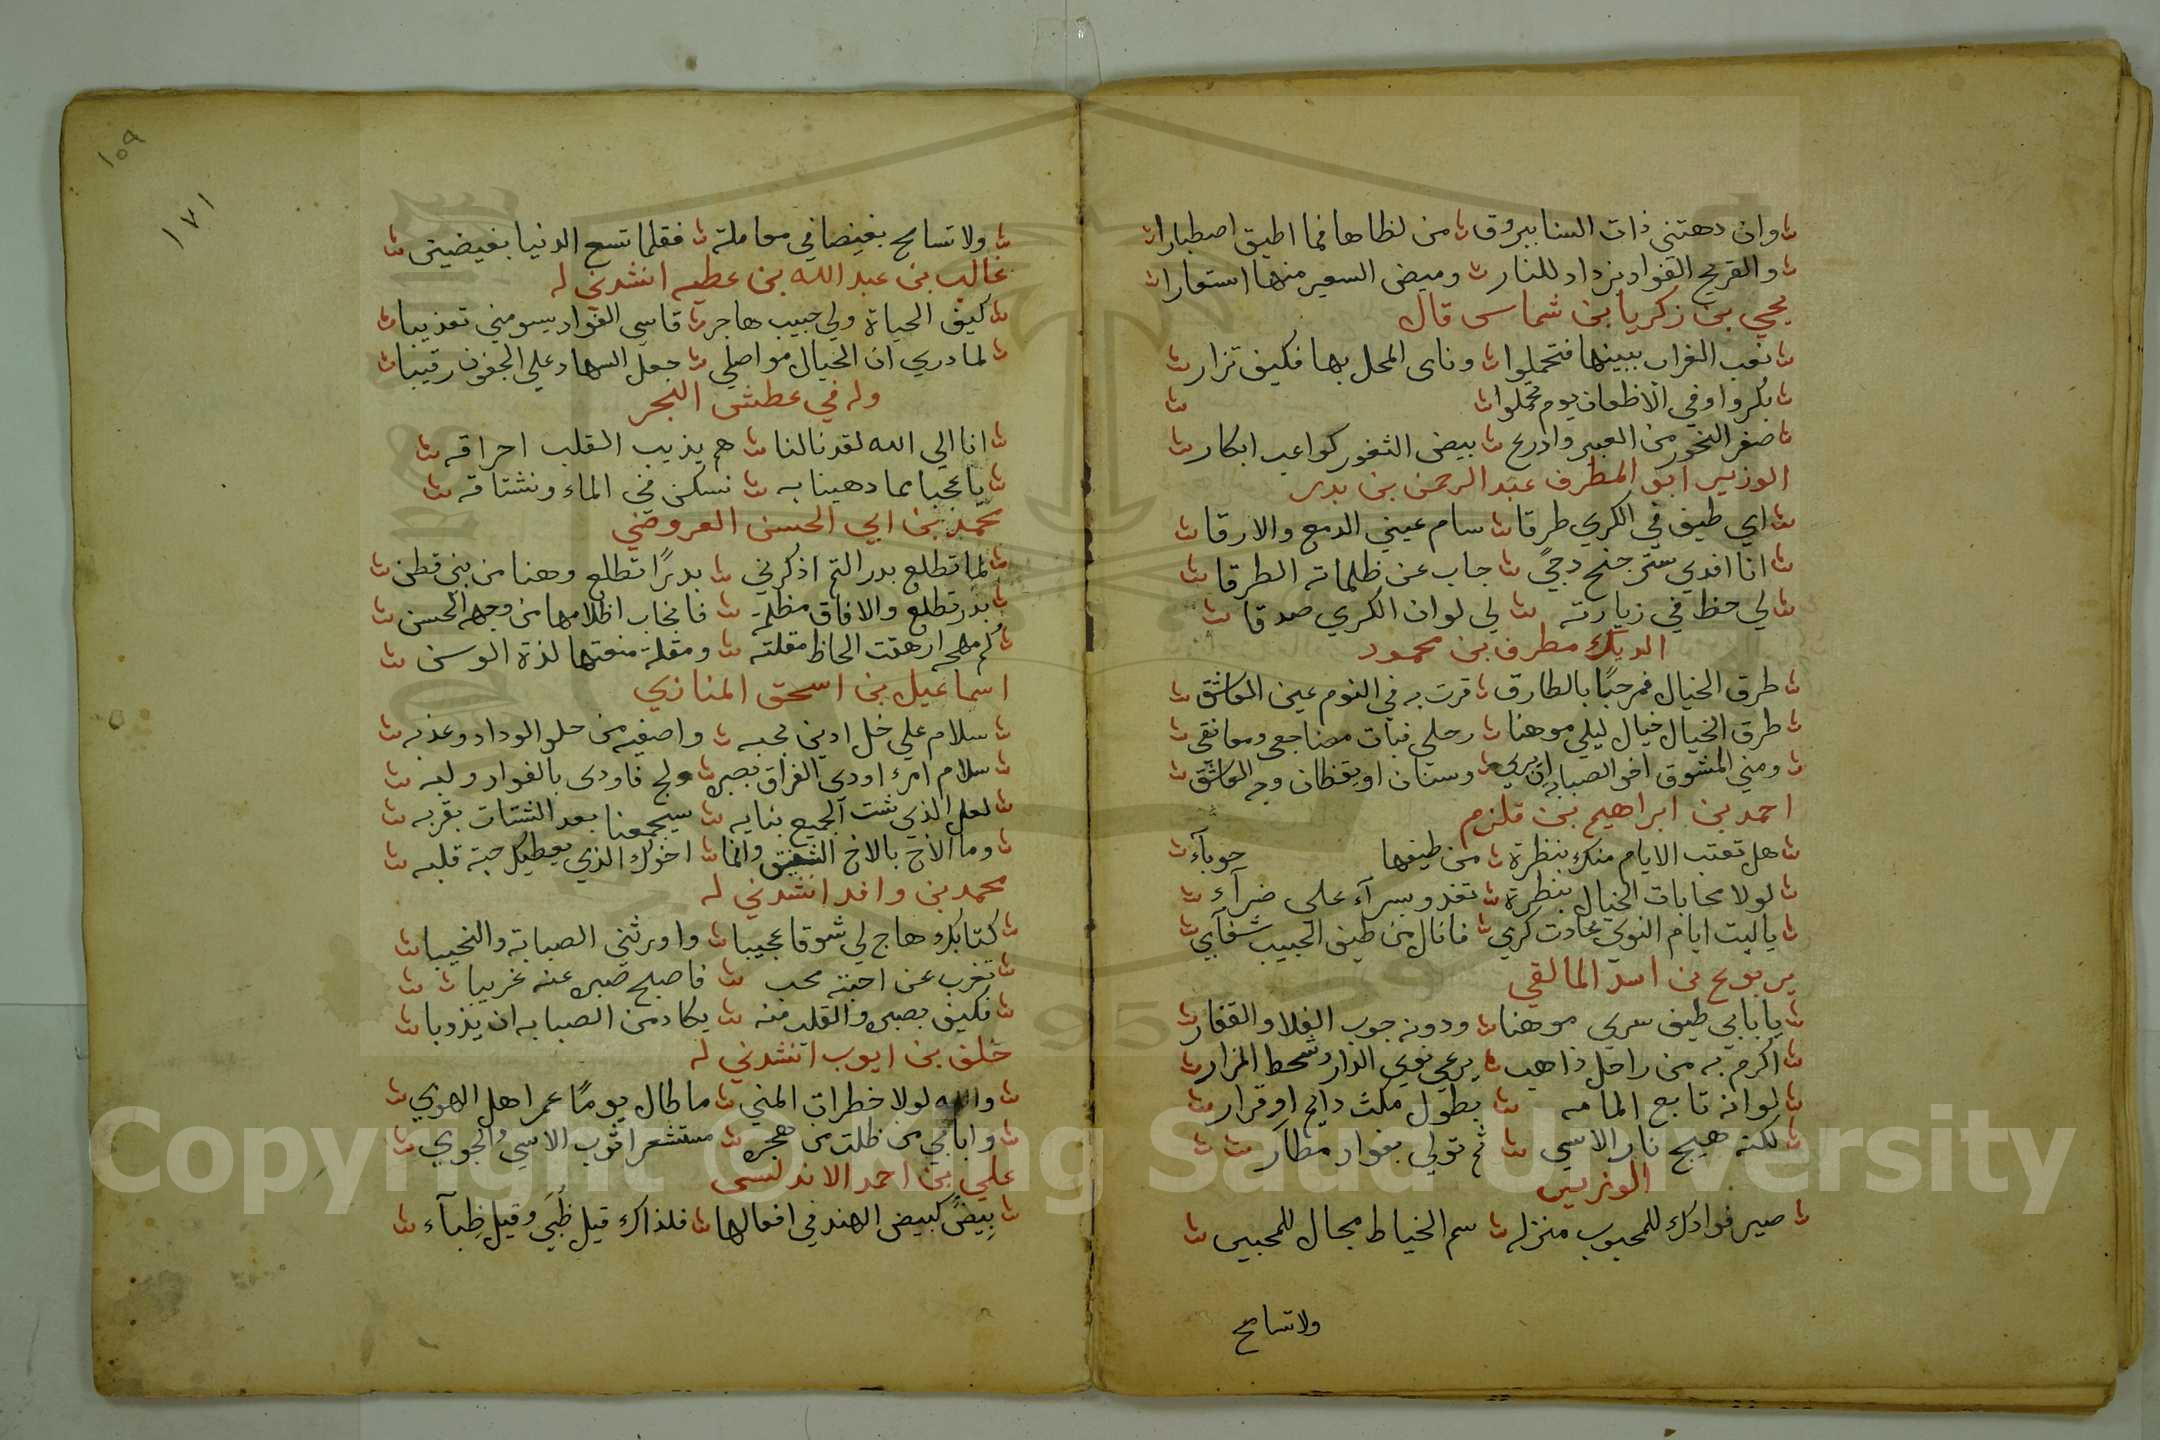 وان دهتني ذات السنا ببروق من لظاها فما اطيق اصطبارا
والقريح الفواد يزداد للنار وميض السعير منها استعارا
يحيي بن زكريا بن شماس قال
نعب الغراب ببينها فتحملوا وناى المحل بها فكيف تزار
بكروا وفي الاظعان يوم تحملوا
صفر النحور من العبير وادرع بيض الثغور كواعب ابكار
الوزير ابو المطرف عبد الرحمن بن بدر
اي طيف في الكري طرقا سام عيني الدمع والارقا
انا افدي ستر جنح دجيً جاب عن ظلماته الطرقا
لي حظ في زيارته لي لوان الكري صدقا
الديك مطرف بن محمود
طرق الخيال فمرحبًا بالطارق قرت به في النوم عين الواثق
طرق الخيال خيال ليلي موهنا رحلي فبات مضاجعي ومعانقي
ومني المشوق اخو الصبابه ان يري وسنان او يقظان وجه الواثق
احمد بن ابراهيم بن قلزم
هل تعتب الايام منك بنظرة من طيفها حوبآء
لولا محابات الخيال بنظرة تغدو بسرآء علي ضرآء
ياليت ايام النوي عادت كري فانال من طيف الحبيب شفآيي
يربوع بن اسد المالقي
يا بابي طيف سري موهنا ودونه جوب الفلا والقفار
اكرم به من راحل ذاهب يرعي نوي الدار وشحط المزار
لوانه تابع المامه بطول مكث دايم او قرار
لكنه هيج نار الاسي ثم تولي بفواد مطار
الوزير
صير فوادك للمحبوب منزله سم الخياط مجال للمحبين
ولا تسامح
١٥٩
١٧١
ولا تسامح بغيضا في معاملة فقلما تسع الدنيا بغيضين
غالب بن عبد الله بن عطيه انشدني له
كيف الحياة ولي حبيب هاجر قاسي الفواد يسومني تعذيبا
لما دري ان الخيال مواصلي جعل السهاد علي الجفون رقيبا
وله في عطش البحر
انا الي الله لقد نالنا هم يذيب القلب احراقه
يا عجبا مما دهينا به نسكن في الماء ونشتاقه
محمد بن ابي الحسن العروضي
لما تطلع بدر التم اذكرني بدرًا تطلع وهنا من بني قطن
بدر تطلع والافاق مظلمة فانجاب اظلامها من وجهه الحسن
كم مهجه ارهقت الحاظ مقلته ومقلة منعتها لذة الوسن
اسماعيل بن اسحق المنادي
سلام علي خل ادين بحبه واصفيه من حلو الوداد وعذبه
سلام امرء اودي الفراق بصبره ولج فاودي بالفواد ولبه
لعل الذي شت الجميع بنايه سيجمعنا بعد الشتات بقربه
وما الاخ بالاخ الشقيق وانما اخوك الذي يعطيك حبة قلبه
محمد بن وافد انشدني له
كتابك هاج لي شوقا عجيبا واورثني الصبابة والنحيبا
تغرب عن احبته محب فاصبح صبره عنه غريبا
فكيف بصبره والقلب منه يكاد من الصبابه ان يذوبا
خلف بن ايوب انشدني له
والله لولا خطرات المني ما طال يومًا عمر اهل الهوي
وابابي من ظلت من هجره مستشعرا ثوب الاسي والجوي
علي بن احمد الاندلسي
بيضً كبيض الهند في افعالها فلذاك قيل ظُبَي وقيل ظِبآء
Copyright © King Saud University